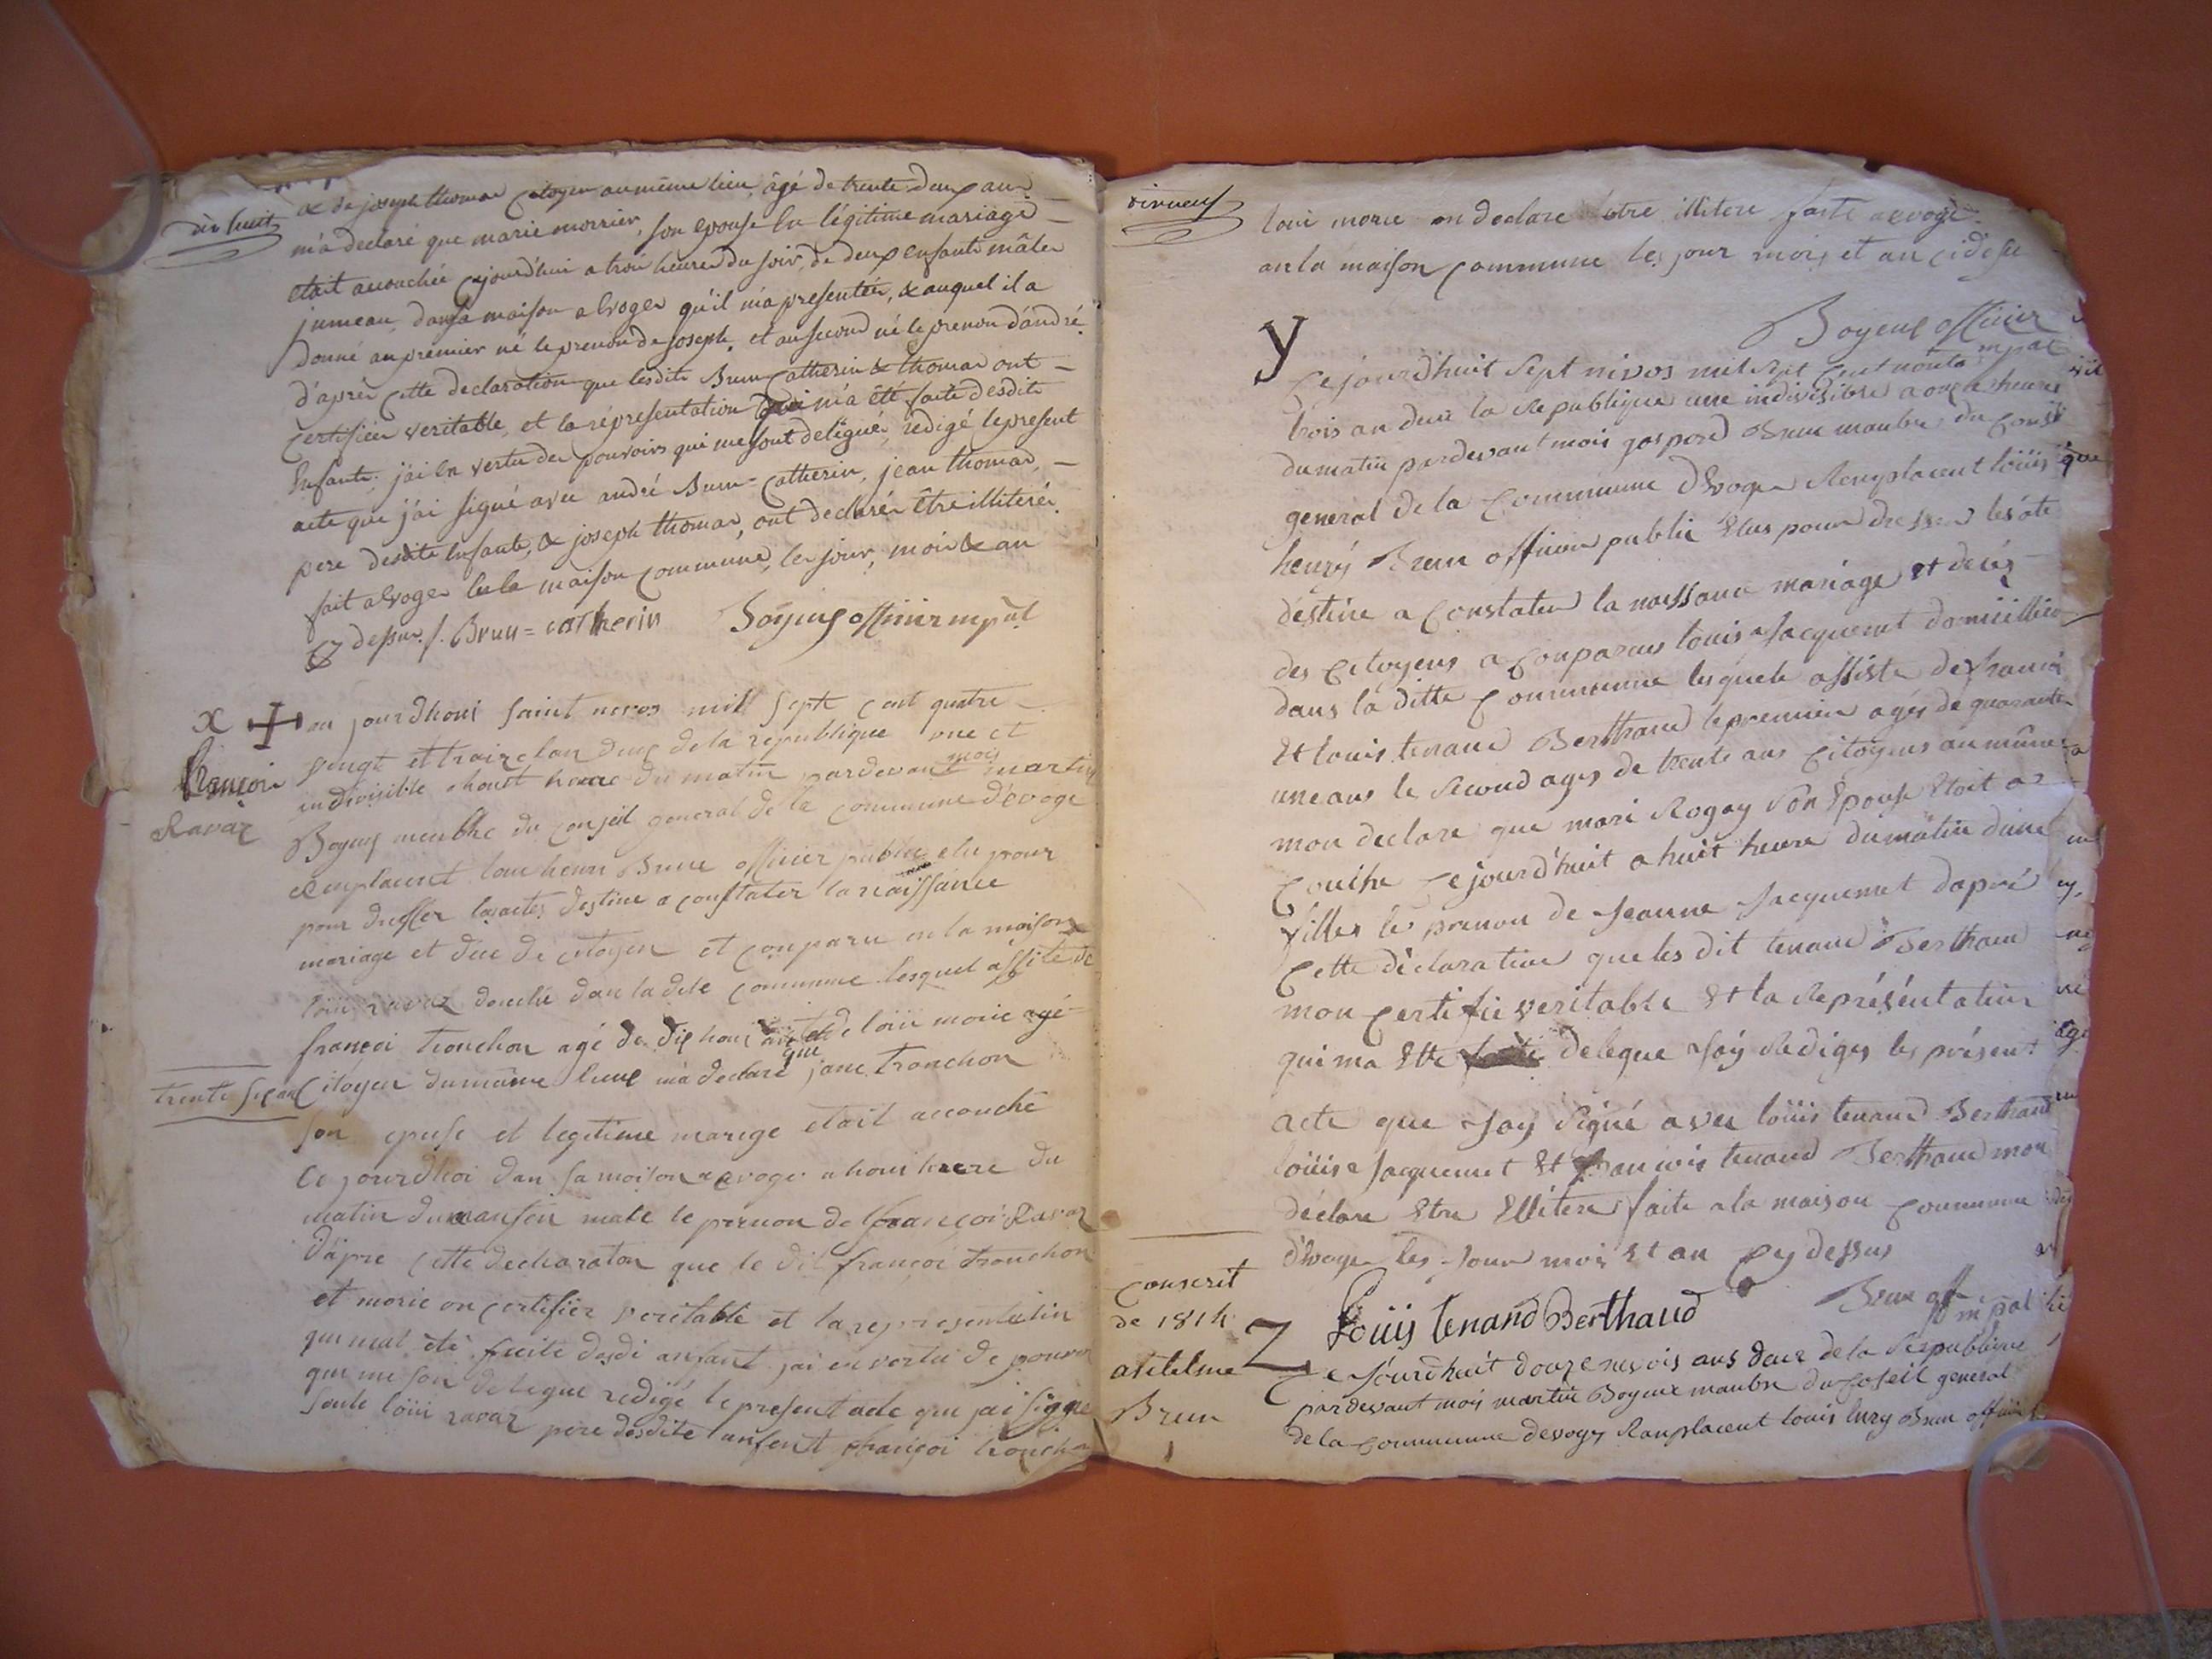 dix huit
& de joseph thomas citoyen au même lieu, âgé de trente deux ans
m'a declaré que marie morrier, son epouse En légitime mariage
etait accouchée cejourd'hui a trois heures du soir, de deux enfants mâles
jumeau, dans sa maison a Evoges qu'il m'a presentés, & auquel il a
donné au premier né le prenom de joseph, et au second né le prenom d'andré.
d'après cette declaration que lesdits Brun Catherin & thomas ont
certifiée veritable, et la répresentation qui m'a été faite desdits
Enfants; j'ai En vertu des pouvoirs qui me sont delégués, redigé le present
acte que j'ai signé avec andré Brun=Catherin, jean thomas,
pere desdits Enfants, & joseph thomas, ont declarés être illiterés.
fait a Evoges En la maison commune, les jour, mois & an
Cy dessus. /. Brun = catherin Boyeux officier mpal
x + au jourdhoui saint nevos mill sept cent quatre
vingt et traize lan deux de la republique une et
indivisible a houit heure du matin pardevant mois martin
François
Ravaz
Boyeux menbhe du conseil general de la commune d'evoge
remplacent loui henri Brun officier public elu pour
pour dresser les actes destine a constater la naissance
mariage et dece de citoyen et conparu en la maison
loüi ravaz domilie dan la dite commune lesquel assite de
françoi tronchon agé de dix houi ant et de loüi morie agé
trente six an Citoyen du mæme lieux m'a declaré que jane tronchon
son epuse et legetime marige etait accouché
ce jourdhoi dan sa moison a evoge a houi heure du
matin dun anfen male le prenon de françoi Ravaz
d'apre cette decharaton que le dit françoi tronchon
et morie on certifiér veritable et la representatin
qui mat eté faite desdi anfant jai en vertu de pouvoir
qui me son delegue redigé le present acte que jai signe
soule loüi ravaz pere desdite anfent françoi tronchon
dixneuf
loui morie on declare etre illitere faite a evoge
an la maison commune les jour mois et an ci desu
Boyeux officier
mpal
y
Cejourdhuit sept nivos mil sept cent nonte
trois an deux la Republique une indivisible a onze heure
du matin pardevant mois gaspard Brun manbre du conseil
general de la Commune d'Evoge Remplacent loüis
henry Brun officier public Elus pour dresser les ate
destine a Constater la naissance mariage et décés
des Citoyens a Conparus louis Jacquemet domicillie
dans la ditte Commune lesquels assiste de francois
Et louis tenand Berthaud le premier agés de quarante
une ans le Second ages de trente ans Citoyens au même
mon declare que mari Rogay son Epouse Etoit a
Couche Cejourd'huit a huit heure du matin d'une
filles les prenon de Jeanne Jacquemet dapré
Cette declaration que les dit tenand Berthaud
mon Certifie veritable Et la Représentation
qui ma Ette delegue Jay Rediges les présent
acte que Jay Signé avec loüis tenand Berthaud
loüis Jacquemet Et francois tenand Berthaud mon
déclare Etre Ellitere faite a la maison Commune
d'Evoge les Jour mois Et an Cy dessus
Brun off
mpal
Loüis tenand Berthaud
Conscrit
de 1814
antelme
Brun
Z
Ce Jourdhuit douze nevois ans deux de la Republique
pardevant mois martin Boyeux manbre du Coseil general
de la Commune devoges Ranplacent louis henry Brun officier